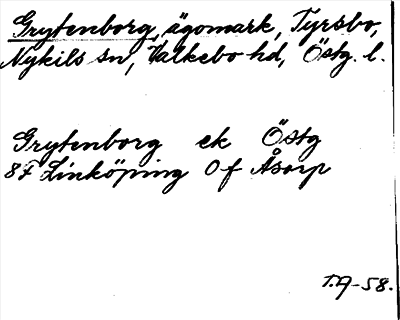 Grytenborg, ägomark, Tyrsbo,
Nykils sn, Valkebo hd, Östg. l.
Grytenborg ek Östg
8F Linköping Of Åsorp
T.A-58.